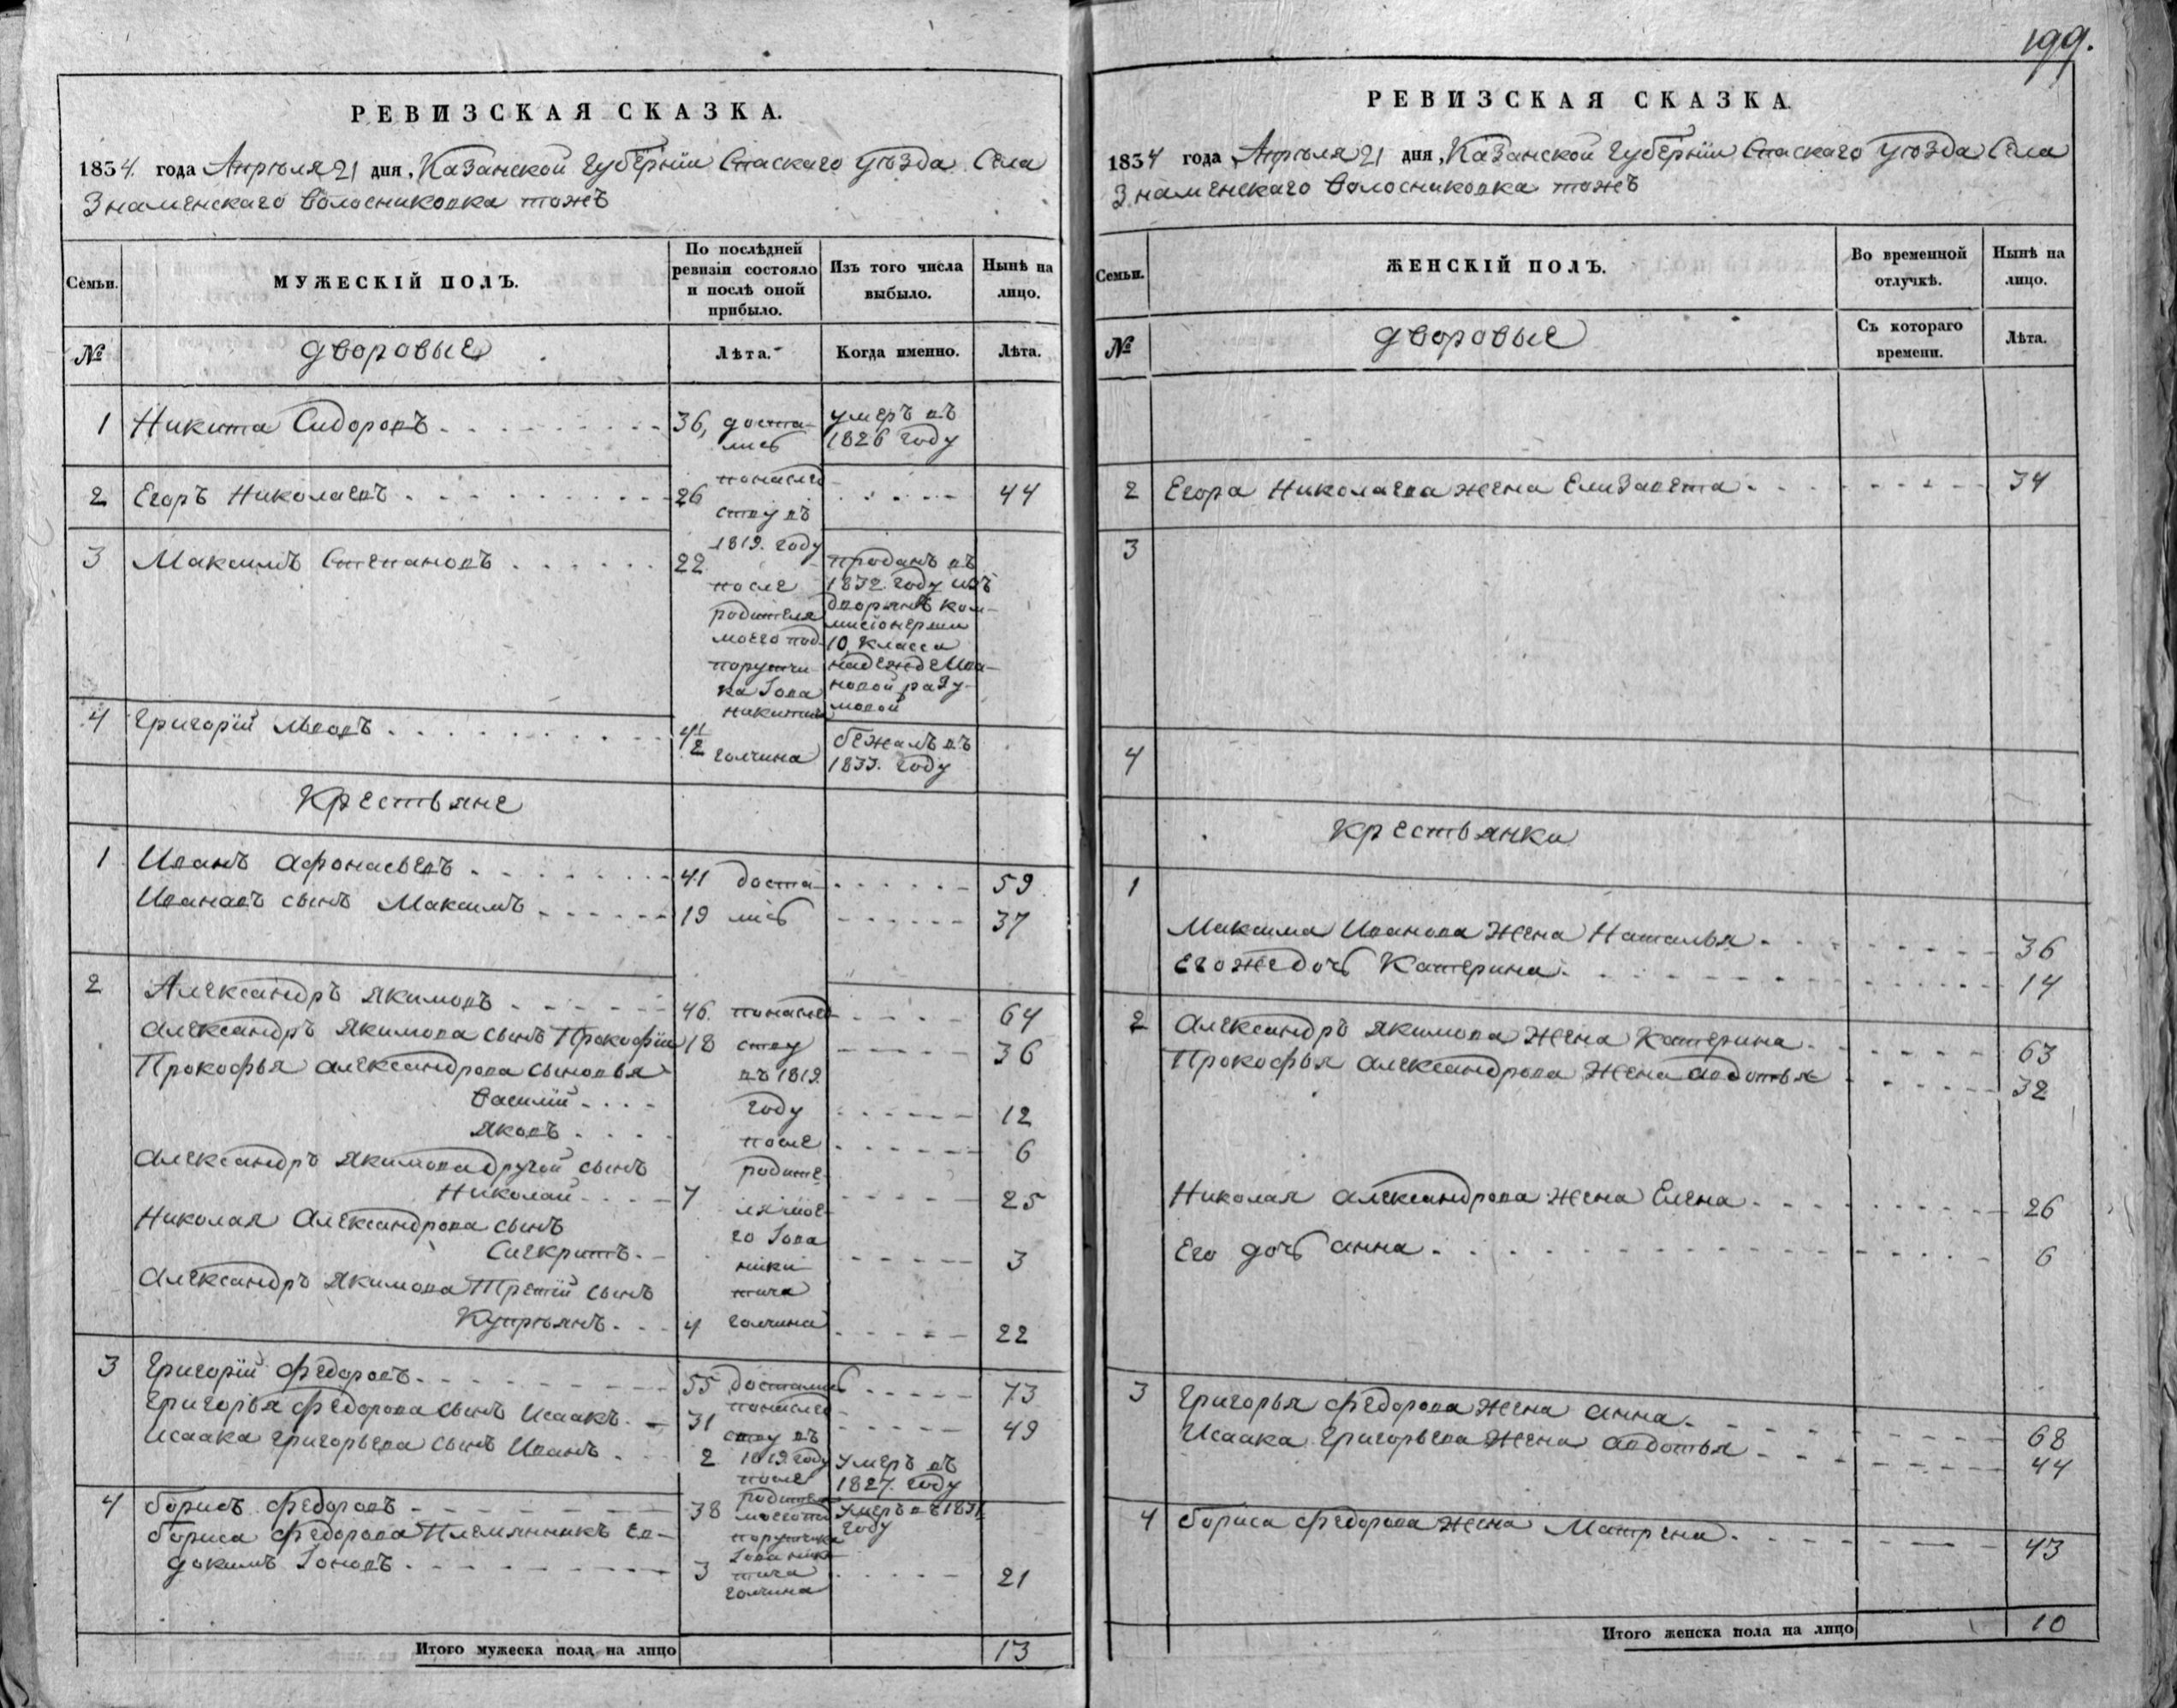 РЕВИЗСКАЯ СКАЗКА.
1834. года Апрѣля 21 дня, Казанской Губернïи Спаскаго уѣзда Села
Знаменскаго Волосниковка тожъ
Семьи.
МУЖЕСКІЙ ПОЛЪ.
По послѣдней
ревизіи состояло
и послѣ оной
прибыло.
Изъ того числа
выбыло.
Нынѣ на
лицо.
№
дворовые
Лѣта.
Когда именно.
Лѣта.
1 Никита Сидоровъ 36, доста-
лись
умеръ въ
1826 году
2 Егоръ Николаевъ 26 44
понасле
ству въ
1819. году
3 Максимъ Степановъ 22
после
родителя
моего под
поручи
ка Iова
никитича
голчина
проданъ въ
1832. году изъ
дворянъ ком-
мисïонерши
10 класса
надежде Ива-
новой разу-
мовой
4 Григорïй Львовъ 4½
бежалъ въ
1833. году
Крестьяне
1 Иванъ Афонасьевъ 41 доста 59
Ивановъ сынъ Максимъ 19 лись 37
2 Александръ Якимовъ 46. понасле 64
Александръ Якимова сынъ Прокофïй 18 ству 36
Прокофья Александрова сыновья въ 1819.
Василïй году 12
Яковъ после 6
Александръ Якимова другой сынъ родите
Николай 7 25
ля мое
Николая Александрова сынъ го Iова
Сиекритъ ники 3
Александръ Якимова Третïй сынъ тича
Купрѣянъ 4 голчина 22
3 Григорïй Федоровъ 55 достались 73
Григорья Федорова сынъ Исаакъ 31 понасле 49
ству въ
Исаака Григорьева сынъ Иванъ 2 1819. году
после
умеръ въ
1827. году
4 Борисъ Федоровъ 38
родителя
моего по
поручика
Iова ники
тича
голчина
умеръ въ 1831
году
Бориса Федорова Племянникъ Ев-
докимъ Iоновъ 3 21
Итого мужеска пола на лицо 13
199.
РЕВИЗСКАЯ СКАЗКА.
1834 года Апрѣля 21 дня, Казанской Губернïи Спаскаго уѣзда Села
Знаменскаго Волосниковка тожъ
Семьи.
ЖЕНСКІЙ ПОЛЪ.
Во временной
отлучкѣ.
Нынѣ на
лицо.
№
дворовые
Съ котораго
времени.
Лѣта.
2 Егора Николаева жена Елизавета 34
3
4
крестьянки
1
Максима Иванова Жена Наталья 36
Егожедочь Катерина 14
2 Александръ Якимова Жена Катерина 63
Прокофья Александрова Жена Авдотья 32
Николая Александрова жена Елена 26
Его дочь Анна 6
3 Григорья Федорова Жена Анна 68
Исаака Григорьева Жена Авдотья 44
4 Бориса Федорова Жена Матрена 43
Итого женска пола на лицо 10